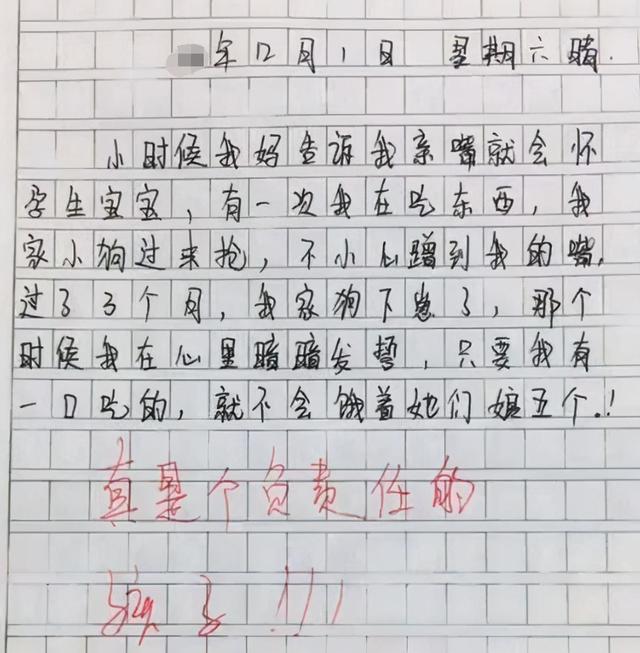 年12月1日 星期六晴.
小时候我妈告诉我亲嘴就会怀
孕生宝宝，有一次我在吃东西，我
家小狗过来抢，不小心蹭到我的嘴，
过了3个月，我家狗下崽了，那个
时候我在心里暗暗发誓，只要我有
一口吃的，就不会饿着她们娘五个.！
真是个负责任的
孩子!!!